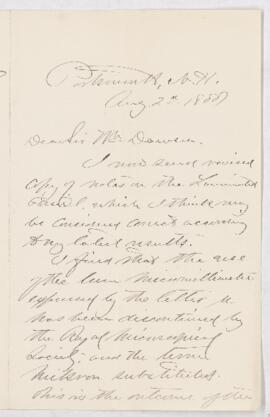 Portsmouth, N.H.
Aug 2nd 1888
Dear Sir Wm Dawson.
I now send revised
copy of notes on the Laminated
fossil, which I think may
be considered correct according
to my latest results.
I find that the use
of the term micromillimetre
expressed by the letter µ
has been discontinued by
the Royal Microscopical
Society: and the term
mikron substituted.
This is the outcome of the